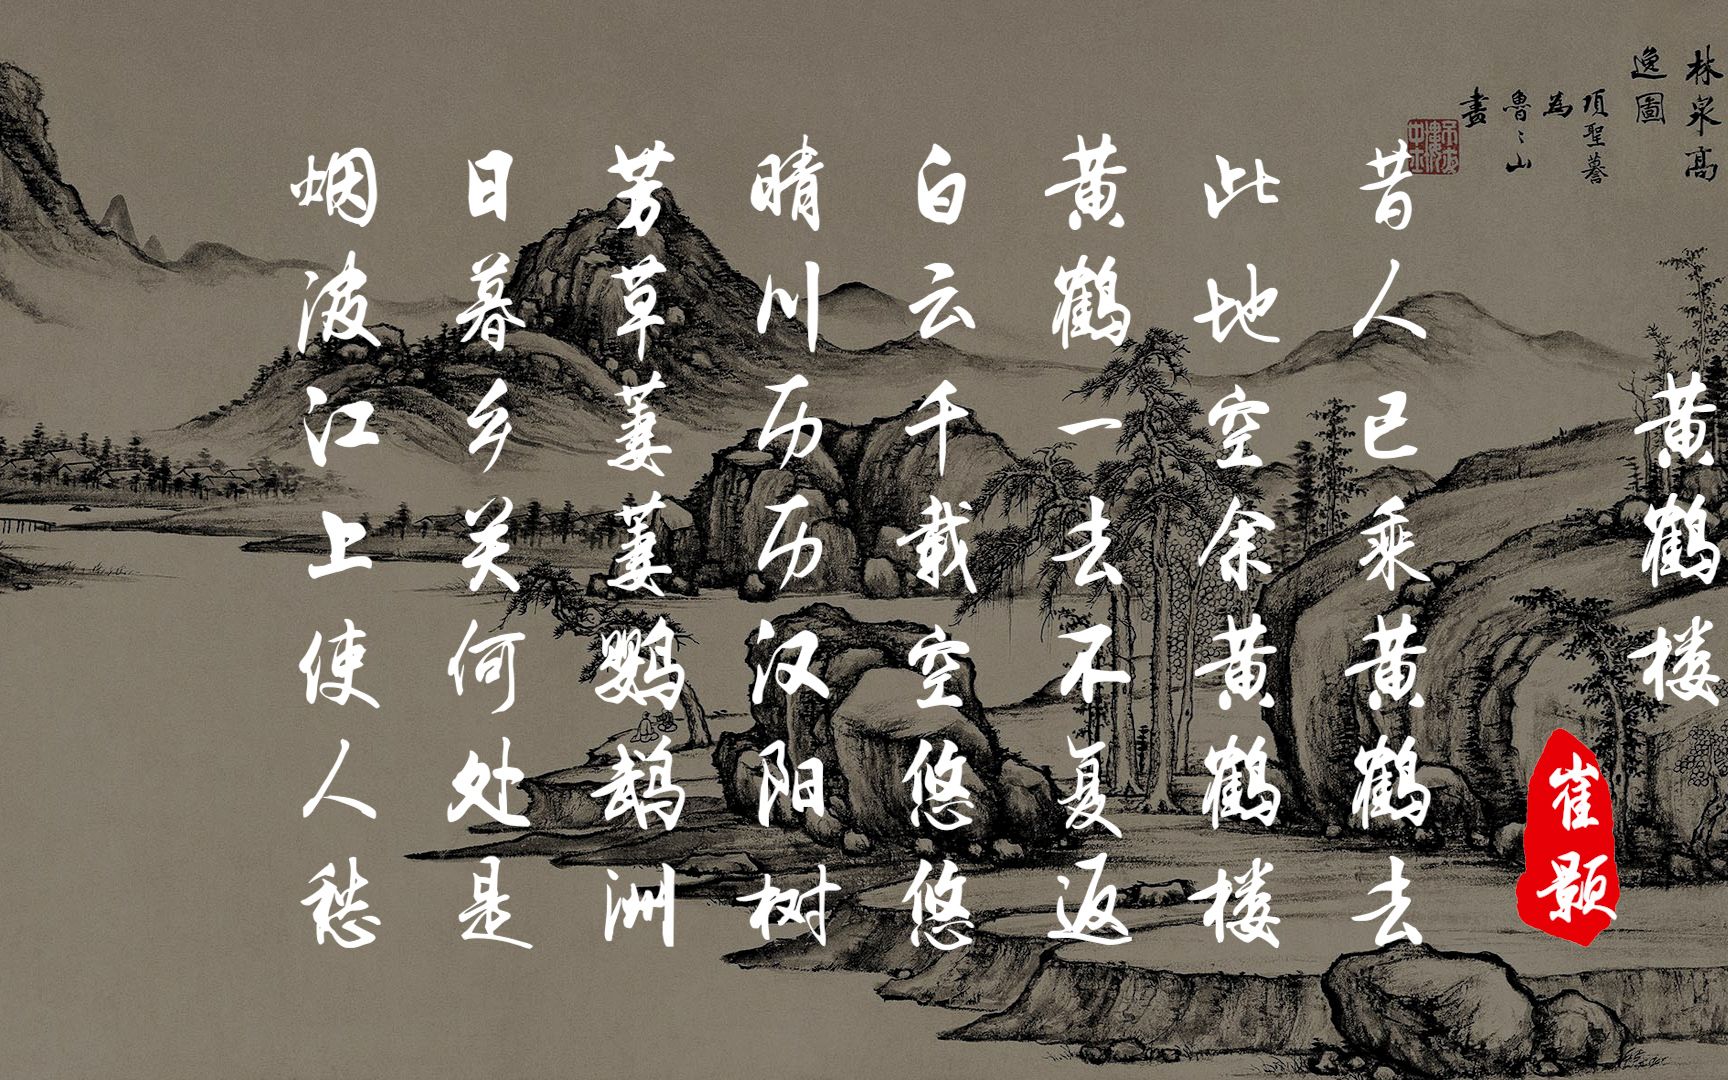 林泉高
逸圖
項聖謩
為
魯々山
畫
黄鹤楼
崔颢
昔人已乘黄鹤去
此地空余黄鹤楼
黄鹤一去不复返
白云千载空悠悠
晴川历历汉阳树
芳草萋萋鹦鹉洲
日暮乡关何处是
烟波江上使人愁